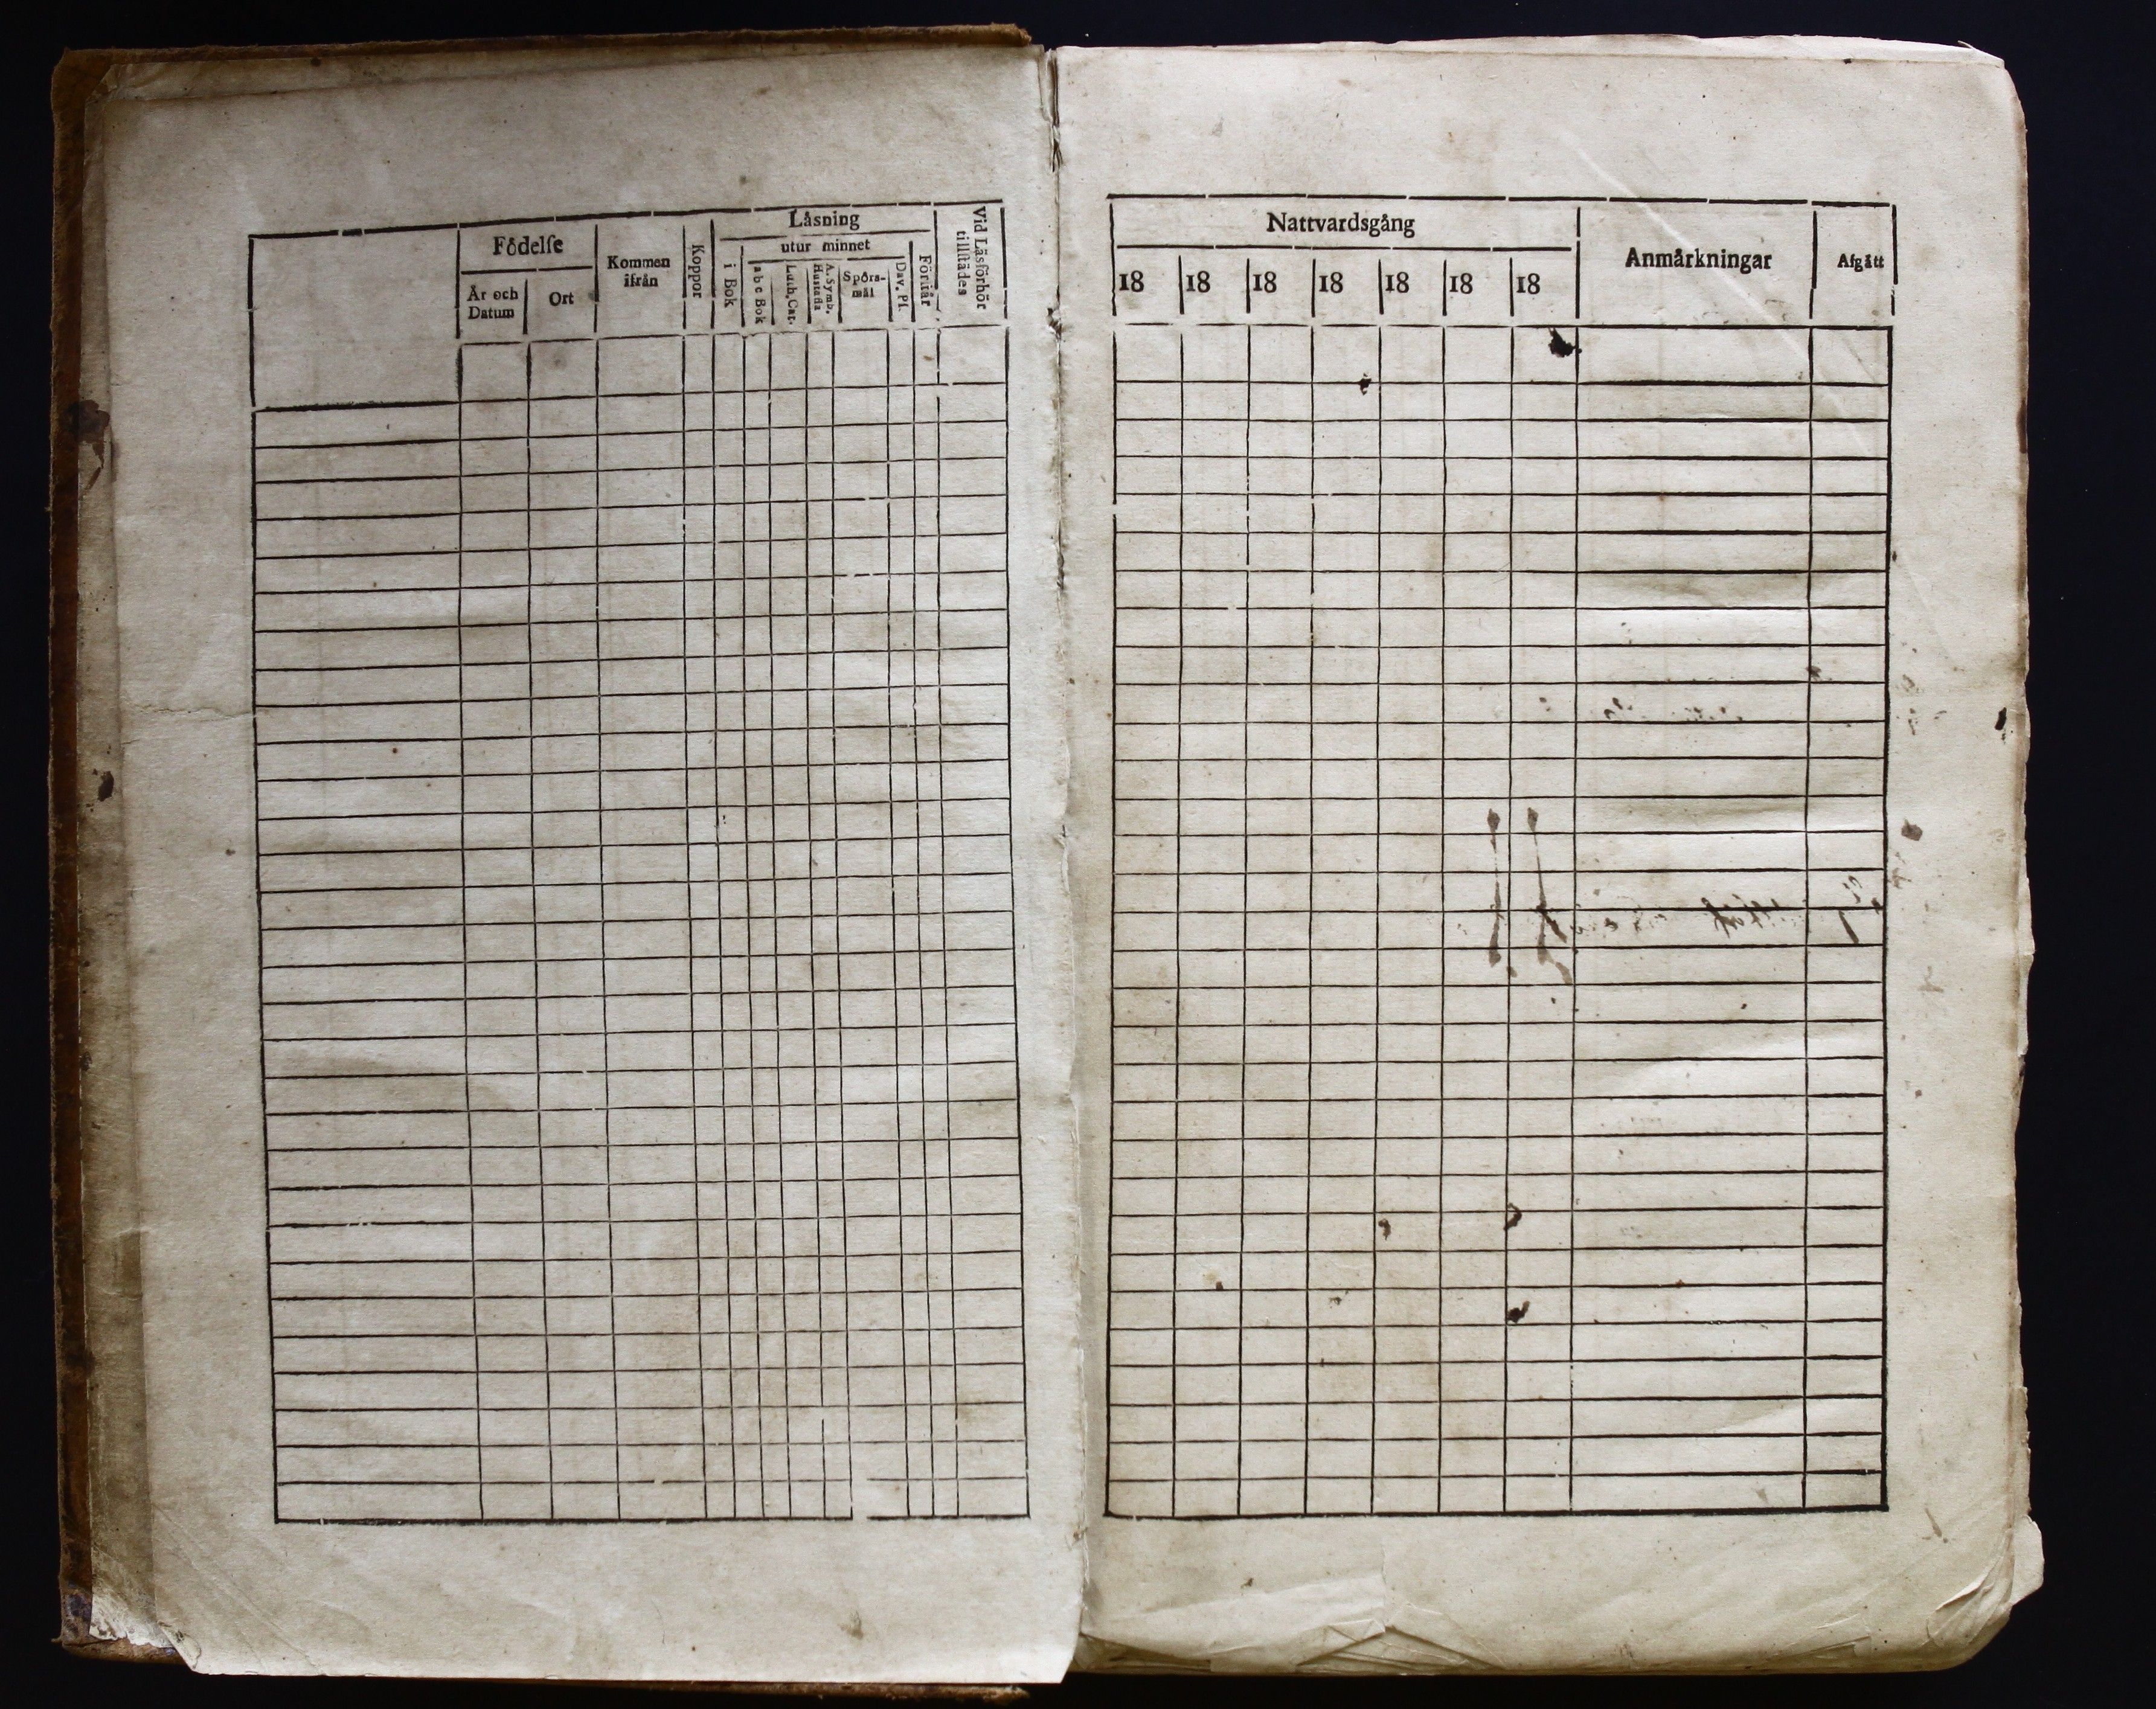 Födelse
År och Datum
Ort
Kommen ifrån
Koppor
Läsning
i Bok
utur minnet
a b c Bok
Luth. Cat.
A. Symb. Hustafla
Spörs-mål
Dav. Ps.
Förstår
Vid Läsförhör tillstädes
Nattvardsgång
18 18 18 18 18 18 18
Anmärkningar
Afgått